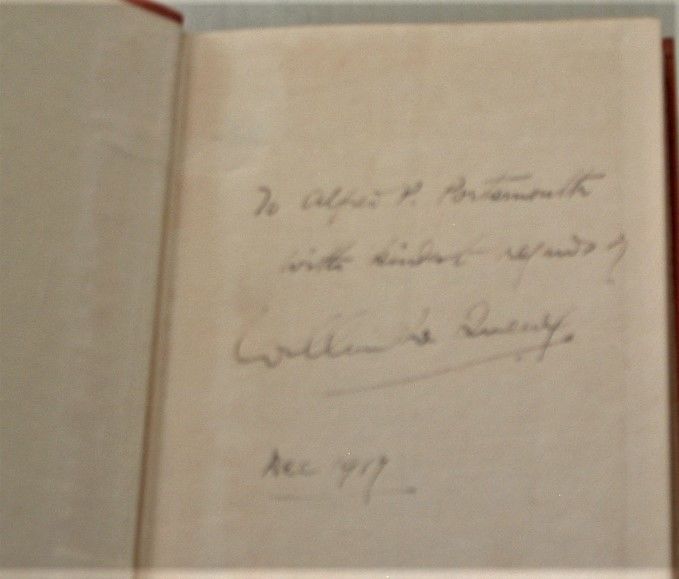 To Alfred P. Portsmouth
with kindest regards of
William Le Queux.
Dec 1919